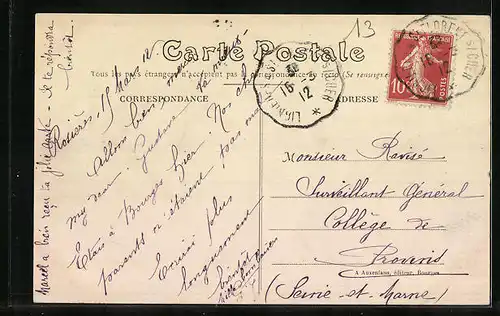 13
Carte Postale
Tous les pays étrangers n'acceptent pas la correspondance au recto (Se renseigner
CORRESPONDANCE
ADRESSE
Rosières, 15 mars 12
Allons bien
my dear Gustave
Etais à Bourges hier. Nos ch
parents n'étaient pas
Ecrirai plus
longuement
bientôt
Marcel a bien reçu ta jolie carte - Il te répondra
bientôt
Monsieur Ravisé
Surveillant Général
Collège de
Provins
(Seine-et-Marne)
A. Auxenfans, éditeur, Bourges
ST FLORENT S/CHER
16
12
10
POSTES